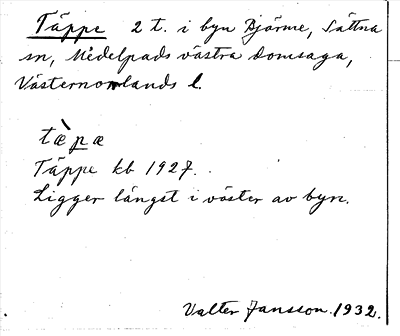 Täppe 2 t. i byn Bjärme, Sättna
sn, Medelpads västra domsaga,
Västernorrlands l.
tæ̀pæ
Täppe kb 1927.
Ligger längst i väster av byn.
Valter Jansson 1932.